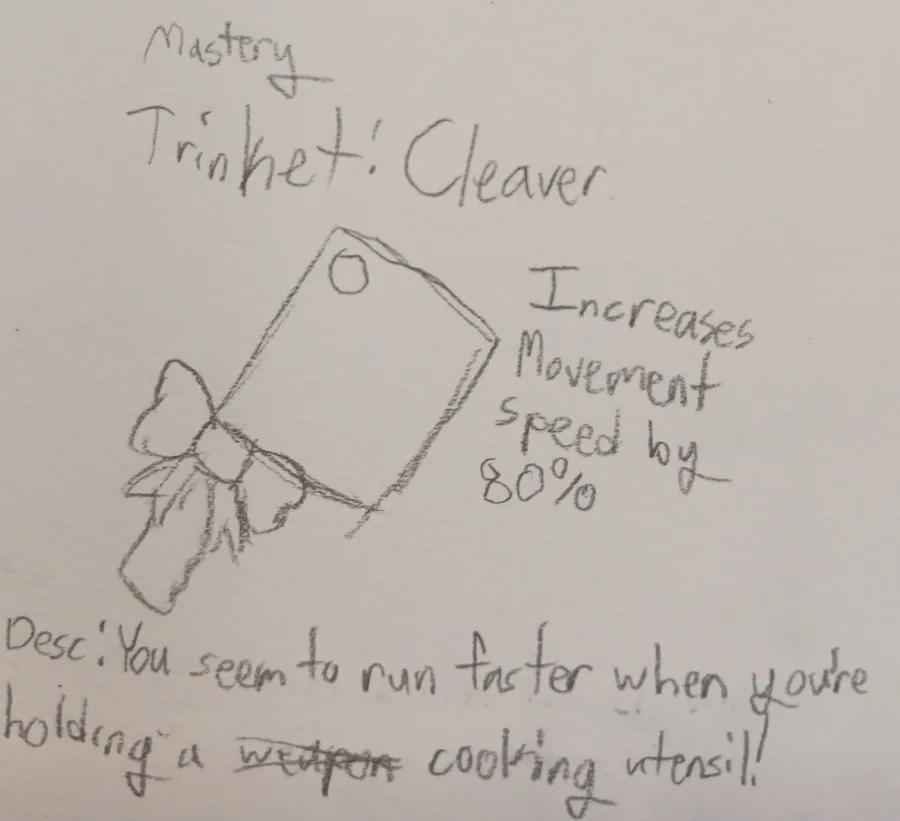 Mastery
Trinket: Cleaver
Increases
Movement
speed by
80%
Desc: You seem to run faster when you're
holding a weapon cooking utensil!